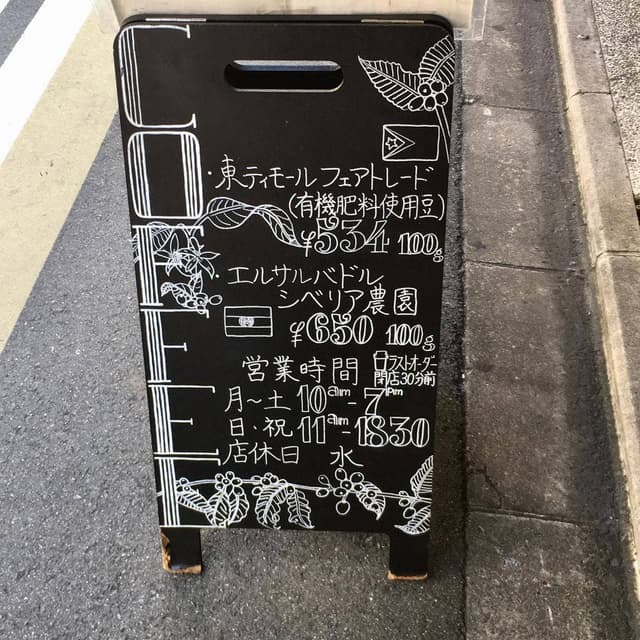 COFFEE
・東ティモールフェアトレード
(有機肥料使用豆)
¥534 100g
・エルサルバドル
シベリア農園
¥650 100g
営業時間 ラストオーダー
閉店30分前
月〜土 10am-7pm
日・祝 11am-1830
店休日 水